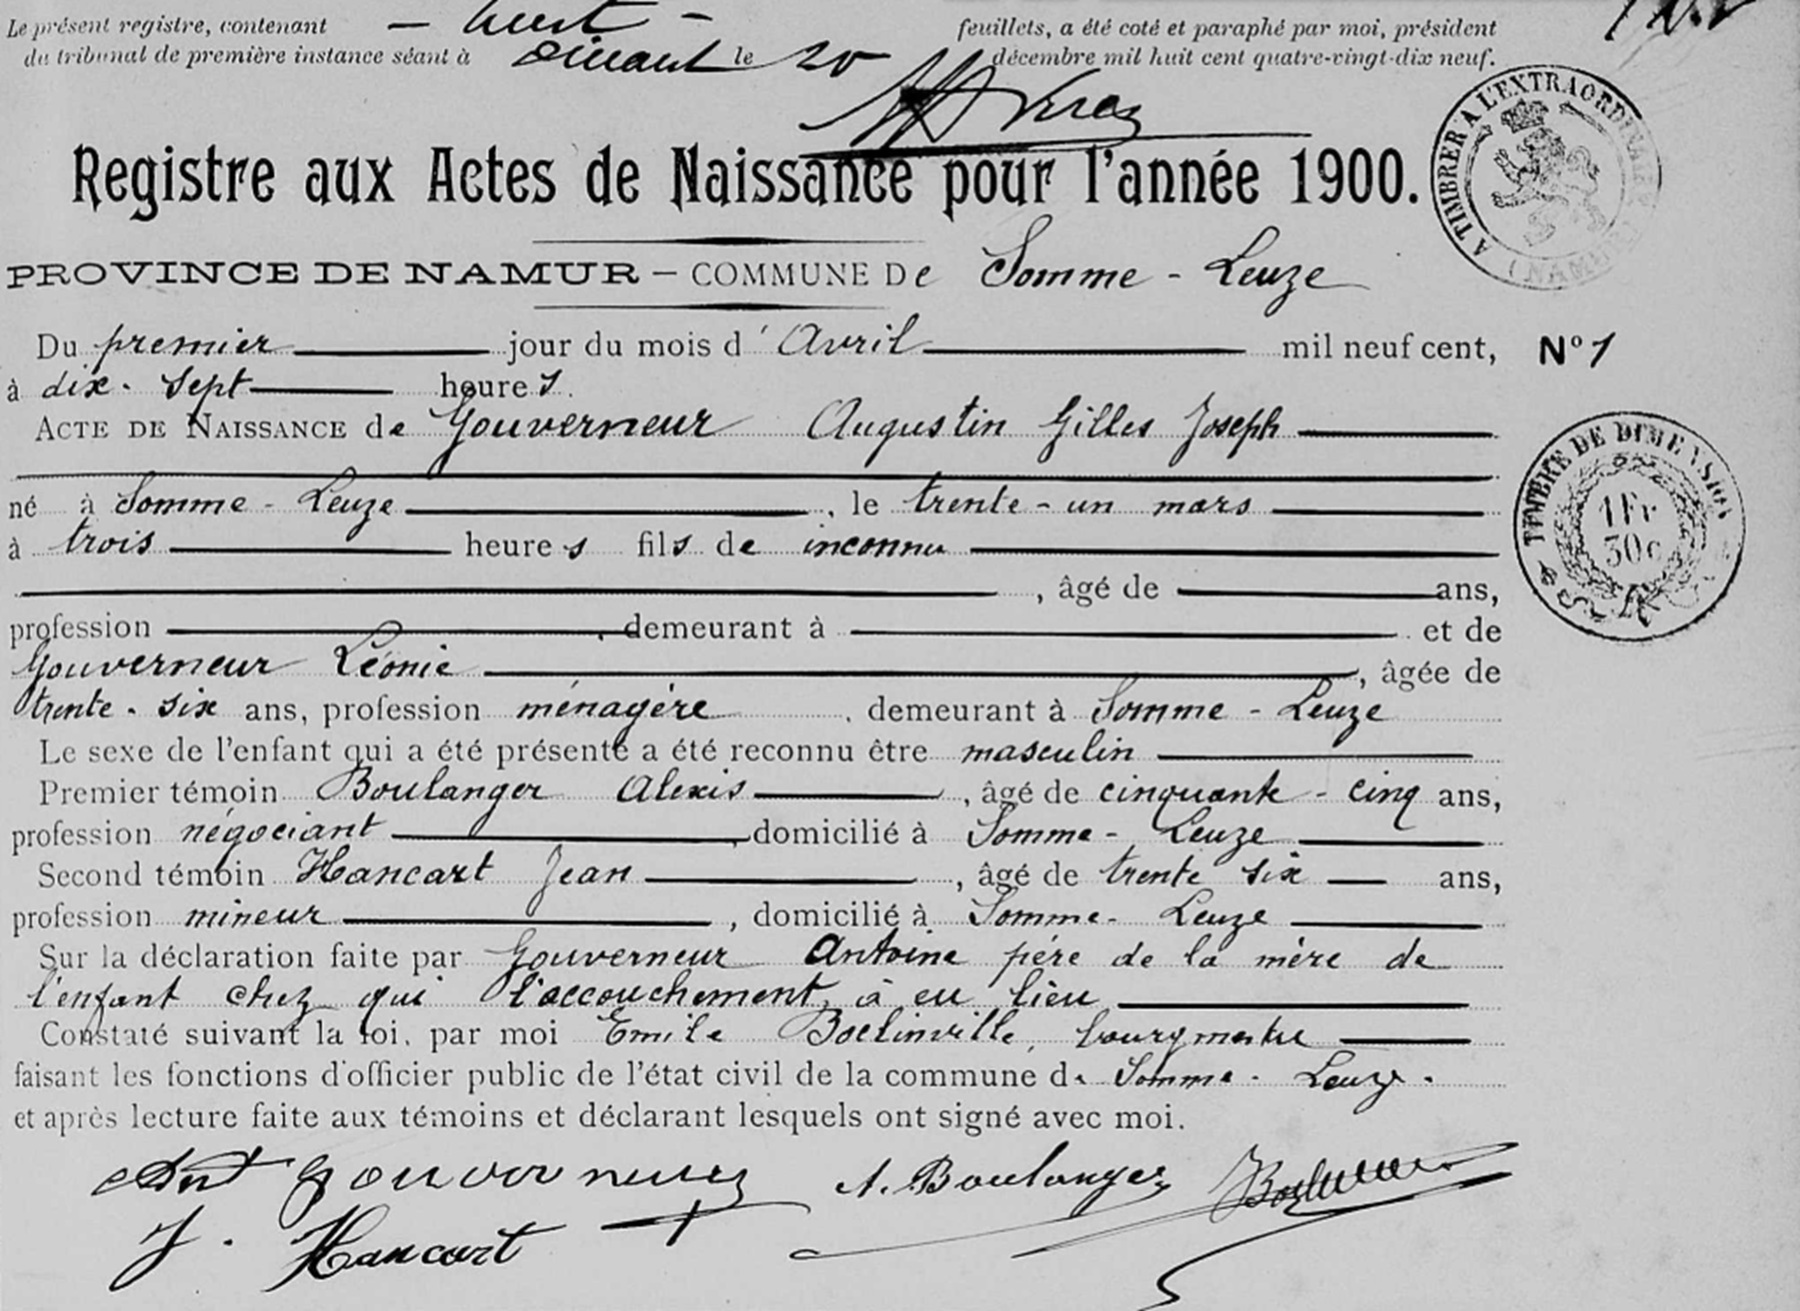 Le présent registre, contenant – huit – feuillets, a été coté et paraphé par moi, président
du tribunal de première instance séant à Dinant le 20 décembre mil huit cent quatre-vingt-dix neuf.
Registre aux Actes de Naissance pour l'année 1900.
A TIMBRER A L'EXTRAORDINAIRE
(NAMUR)
PROVINCE DE NAMUR – COMMUNE De Somme - Leuze
Du premier jour du mois d' Avril mil neuf cent, N° 1
à dix - sept heures.
ACTE DE NAISSANCE de Gouverneur Augustin Gilles Joseph
TIMBRE DE DIMENSION
1 Fr
30 c
né à Somme - Leuze, le trente - un mars
à trois heures fils de inconnu
, âgé de ans,
profession , demeurant à et de
Gouverneur Léonie , âgée de
trente - six ans, profession ménagère , demeurant à Somme - Leuze
Le sexe de l'enfant qui a été présenté a été reconnu être masculin
Premier témoin Boulanger Alexis , âgé de cinquante - cinq ans,
profession négociant , domicilié à Somme - Leuze
Second témoin Hancart Jean , âgé de trente six ans,
profession mineur , domicilié à Somme - Leuze
Sur la déclaration faite par Gouverneur Antoine père de la mère de
l'enfant chez qui l'accouchement, à eu lieu
Constaté suivant la loi, par moi Emile , bourgmestre
faisant les fonctions d'officier public de l'état civil de la commune de Somme - Leuze.
et après lecture faite aux témoins et déclarant lesquels ont signé avec moi.
Ant Gouverneur A. Boulanger
J. Hancart